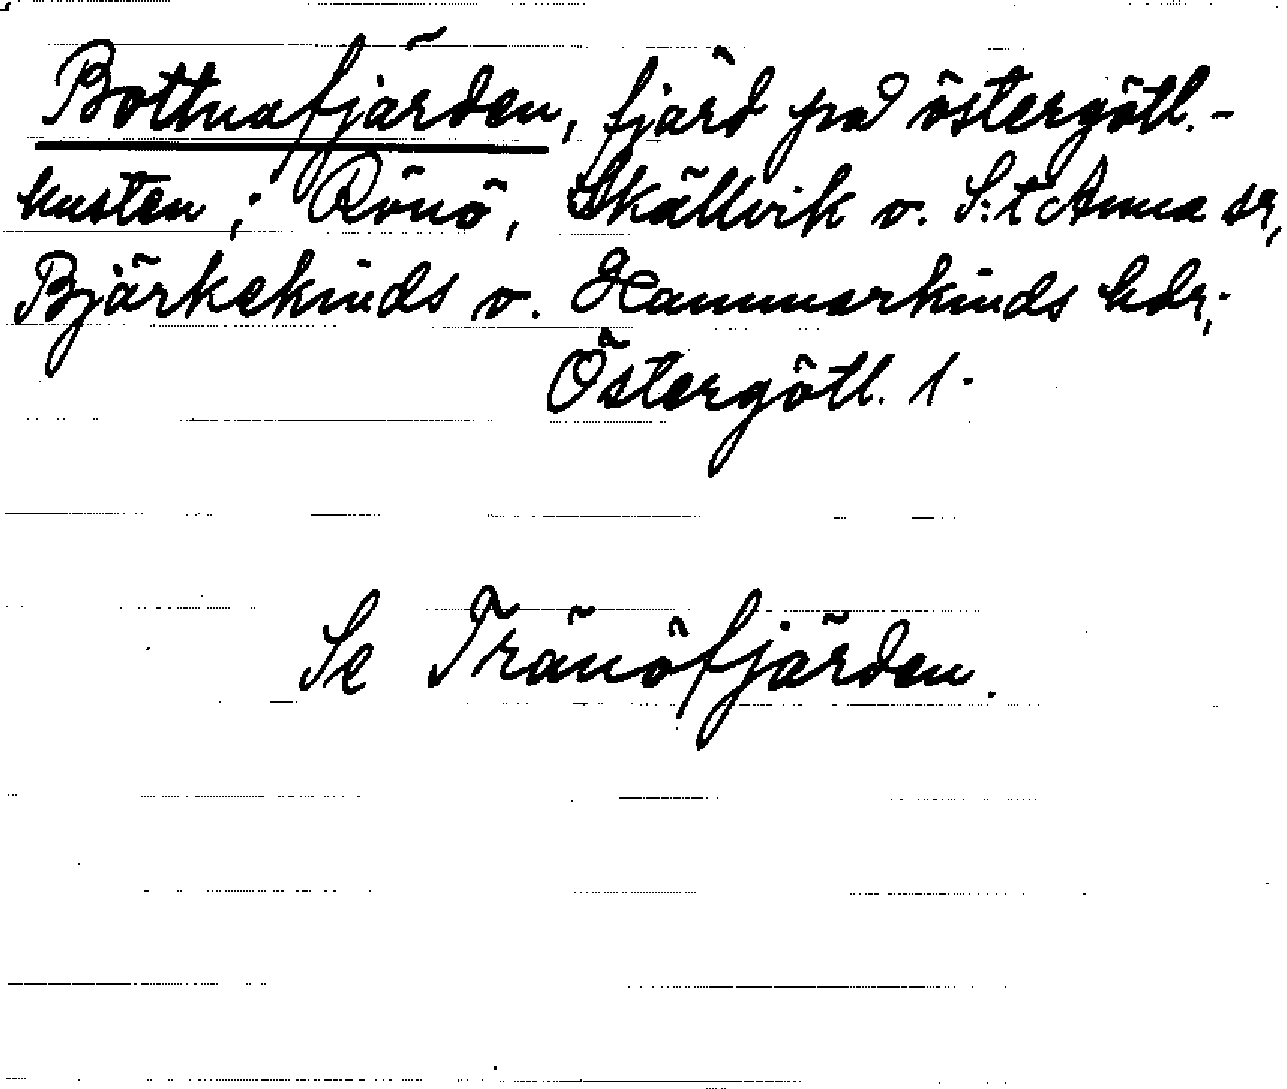 Bottnafjärden, fjärd på östergötl.-
kusten; Rönö, Skällvik o. S:t Anna sr,
Björkekinds o. Hammarkinds hdr,
Östergötl. l.
Se Tränöfjärden.